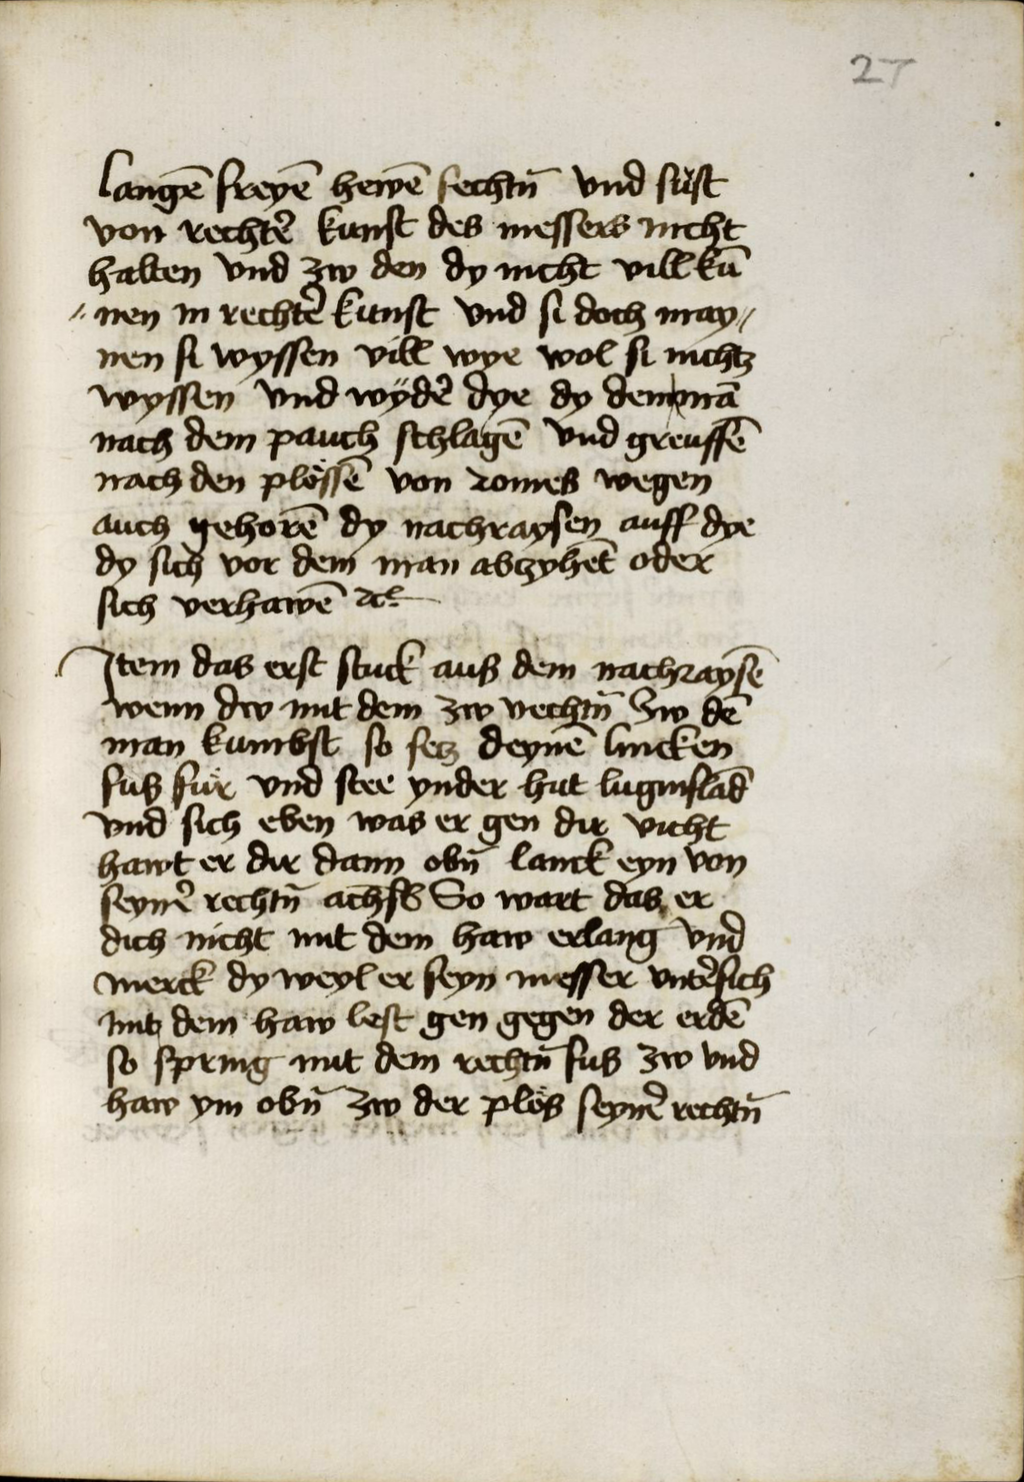 27
langē freyē hewē fechtn̄ vnd süst
von rechtē kunst des messers nicht
halten vnd zw den dy nicht vill kū
nen in rechtē kunst vnd si doch may//
nen si wyssen vill wye wol si nichtz
wyssen vnd wÿdē dye dy dem mā
nach dem pauch schlagē vnd greuffē
nach den plössē von romes wegen
auch gehorē dy nachraysen auff dye
dy sich vor dem man abzyhēt oder
sich verhawē ꝛcͭ
Item das erst stuck aus dem nachraysē
wenn dw mit dem zw vechtn̄ Zw dē
man kumbst so setz deynē lincken
fus für vnd stee ynder hut luginslād
vnd sich eben was er gen dir vicht
hawt er dir dann obn̄ lanck eyn von
seynē rechtn̄ achsß So wart das er
dich nicht mit dem haw erlang vnd
merck dy weyl er seyn messer vntēsich
mit dem haw lest gen gegen der erdē
so spring mit dem rechtn̄ fus zw vnd
haw ym obn̄ zw der plös seynē rechtn̄